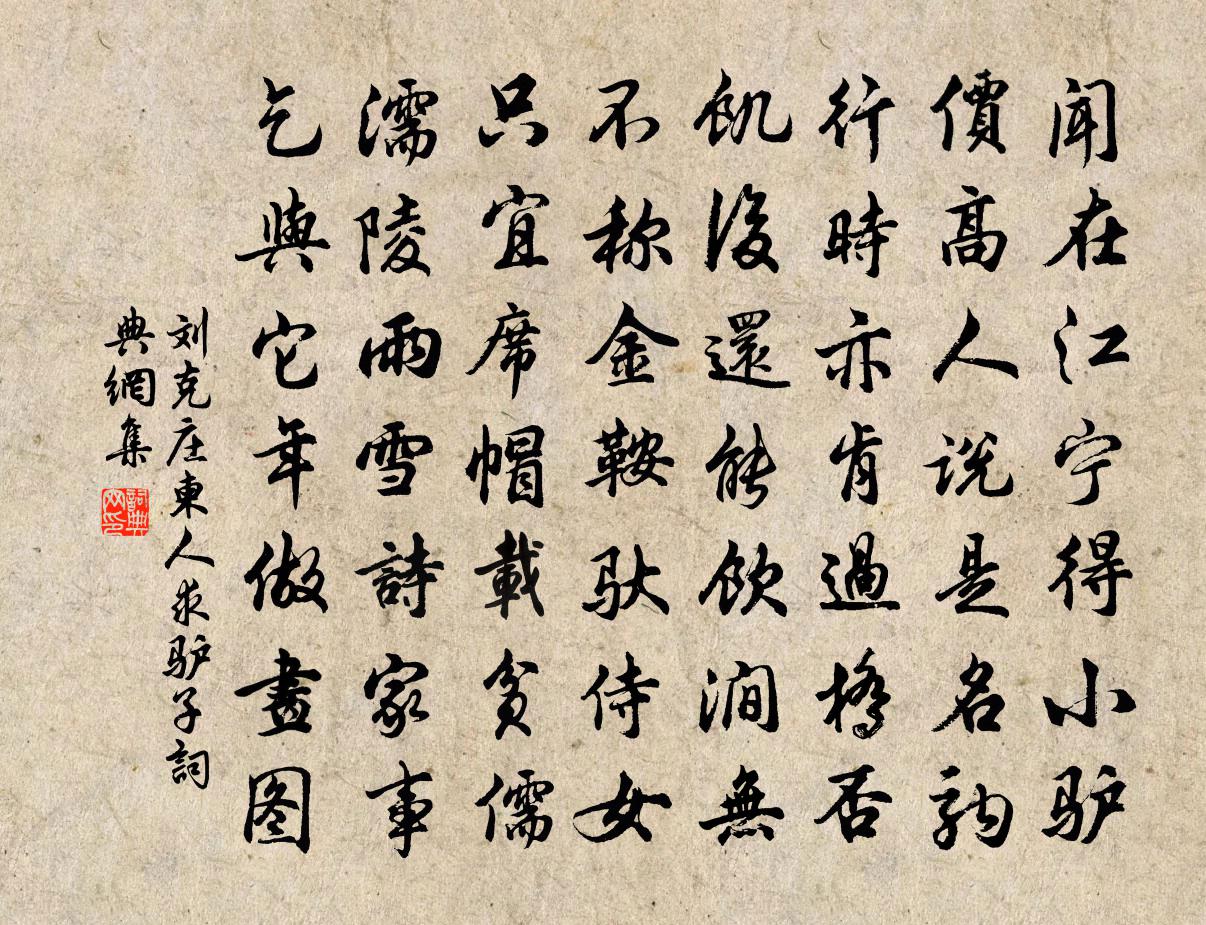 闻在江宁得小驴
價高人说是名駒
行時亦肯過橋否
飢後還能飲澗無
不称金鞍馱侍女
只宜席帽載貧儒
濡陵雨雪詩家事
乞與它年做畫图
刘克庄東人求驴子詞
典網集
詞典网印